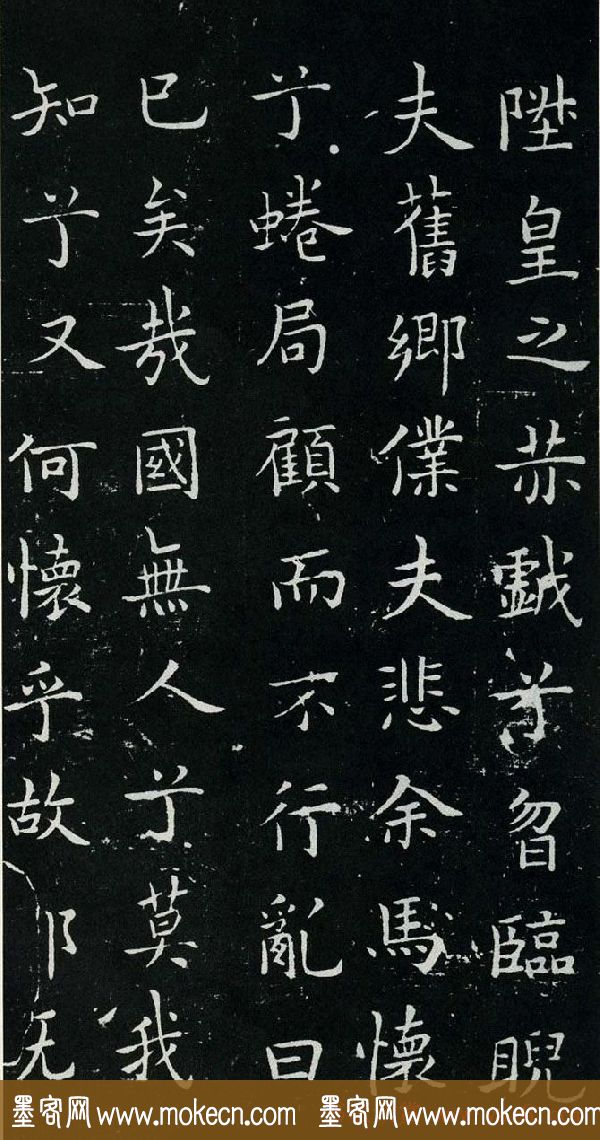 陞皇之赤戲兮曶臨睨
夫舊鄉僕夫悲余馬懷
兮蜷局顧而不行亂曰
已矣哉國無人兮莫我
知兮又何懷乎故
墨客网 www.mokecn.com 墨客网 www.mokecn.com